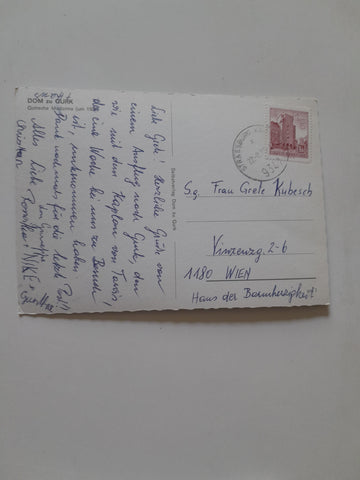 DOM zu GURK
Gotische Madonna um
Liebe Grete! Herzliche Grüße von
einem Ausflug nach Gurk, den
wir mit dem Kaplan von Tarvis,
der eine Woche bei uns zu Besuch
ist, unternommen haben.
Dank nochmal für die lieben
Alles Liebe
Christian
Selbstverlag Dom zu Gurk
STRASSBURG
Sg. Frau Grete Kubesch
Vinzenzg. 2-6
1180 WIEN
Haus der Barmherzigkeit